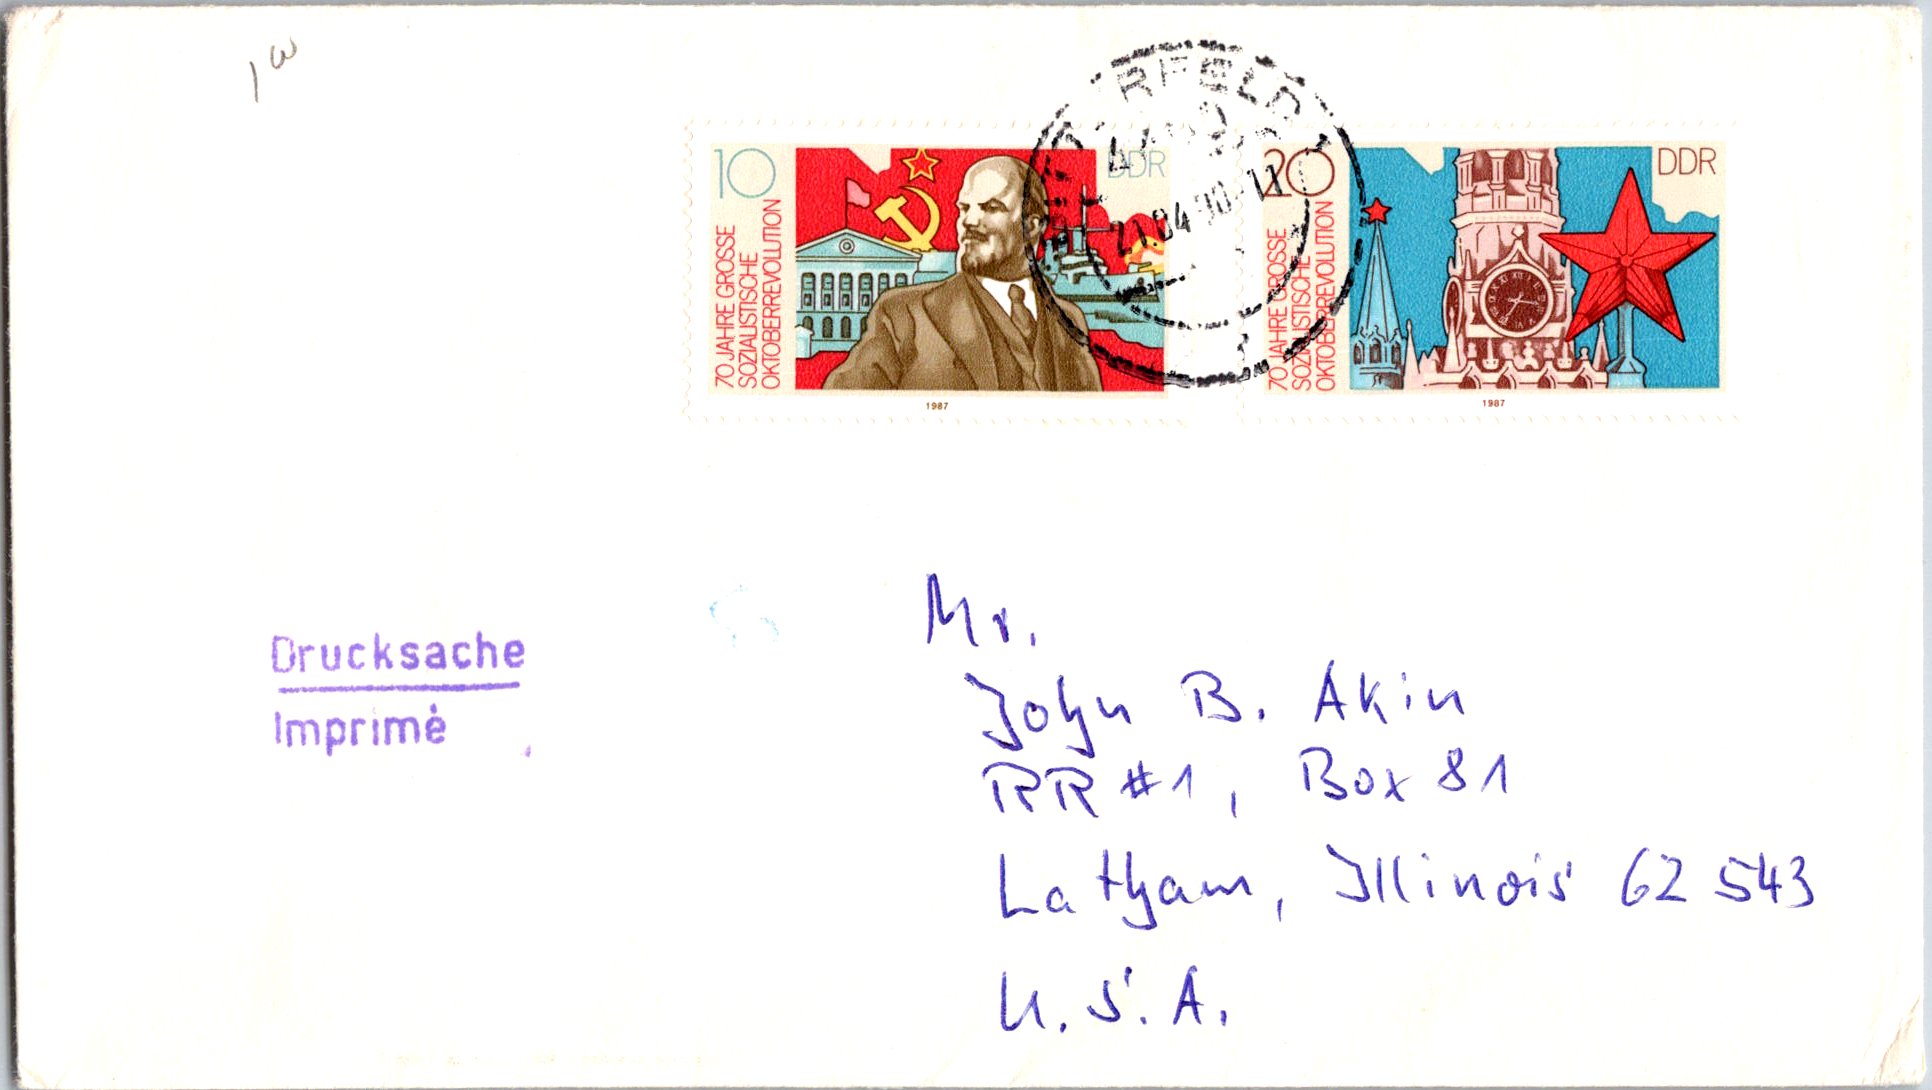 10
DDR
70 JAHRE GROSSE
SOZIALISTISCHE
OKTOBERREVOLUTION
1987
20
DDR
70 JAHRE GROSSE
SOZIALISTISCHE
OKTOBERREVOLUTION
1987
Drucksache
Imprimé
Mr.
John B. Akin
RR #1, Box 81
Latham, Illinois 62543
U.S.A.